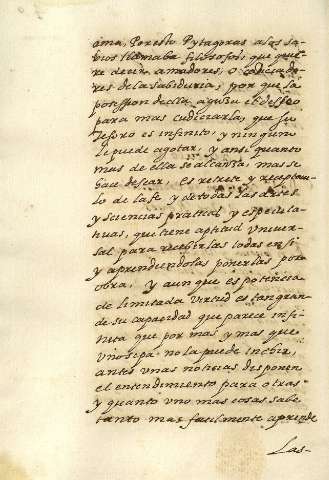 ama, Poresto Pytagoras a los sa-
bios llamaba filosofos, que quie-
re decir amadores, o codiciado-
res de la Sabiduria; por que la
possession de ella aguza el desseo
para mas cudiciarla, que su
tesoro es infinito, y ninguno
le puede agotar, y ansi quanto
mas de ella se alcanza, mas se
hace desear, Es retrete y receptacu-
lo de la fe y de todas las artes
y sciencias practicas y especula-
tivas, que tiene aptitud univer-
sal para recebirlas todas en si
y aprendiendolas ponerlas por
obra, y aun que es potencia
de limitada virtud es tan gran-
de su capacidad que parece infi-
nita que por mas y mas que
uno sepa, no la puede inchir,
antes unas noticias disponen
el entendimiento para otras
y quanto uno mas cosas sabe
tanto mas facilmente aprende
Las-